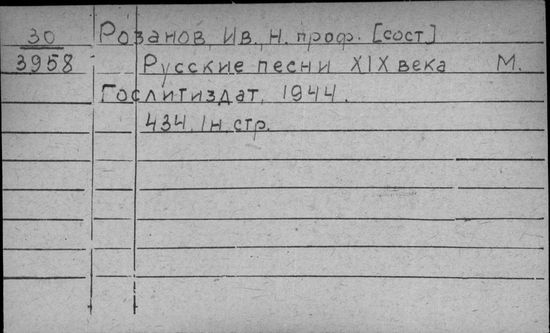 30 Розанов, Ив. Н. проф. [сост]
3958 Русские песни XIX века М.
Гослитиздат, 1944.
434, 1н стр.